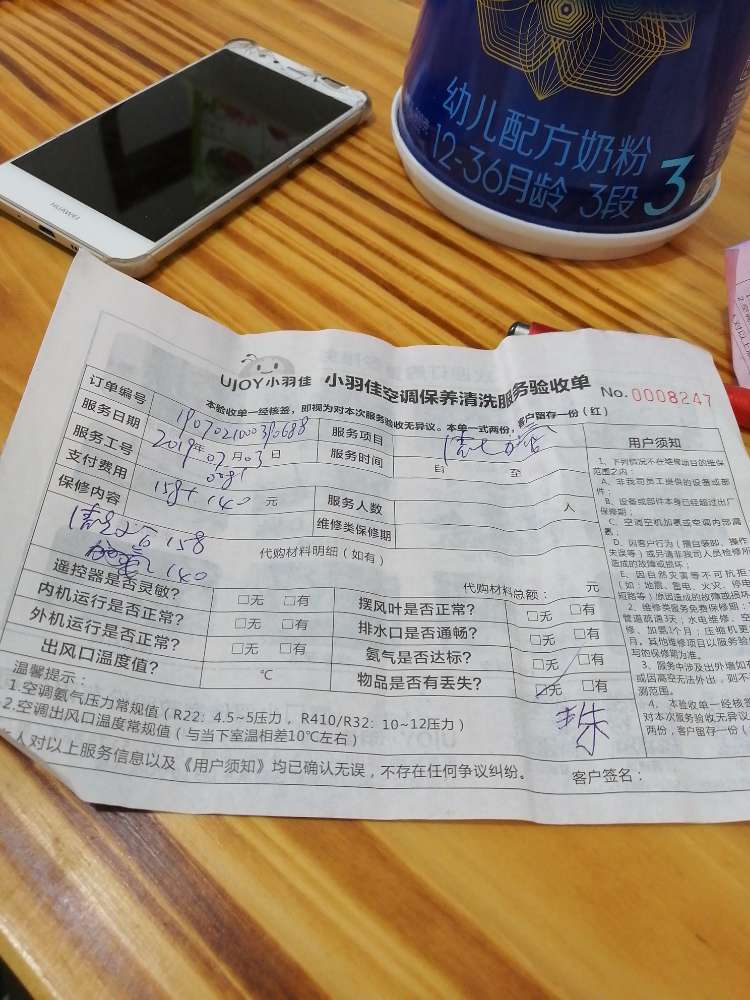 HUAWEI
幼儿配方奶粉
12-36月龄 3段 3
UJOY小羽佳 小羽佳空调保养清洗服务验收单 No.0008247
本验收单一经核签，即视为对本次服务验收无异议。本单一式两份，客户留存一份（红）
订单编号
服务项目
服务日期 2019年07月03日
服务时间 自 至
服务工号 0081
支付费用 158+140 元
服务人数 人
保修内容
维修类保修期
158
140
代购材料明细（如有）
代购材料总额： 元
遥控器是否灵敏？ □无 □有
摆风叶是否正常？ □无 □有
内机运行是否正常？ □无 □有
排水口是否通畅？ □无 □有
外机运行是否正常？ □无 □有
氨气是否达标？ □无 □有
出风口温度值？ ℃
物品是否有丢失？ □无 □有
温馨提示：
1.空调氨气压力常规值（R22：4.5~5压力，R410/R32：10~12压力）
2.空调出风口温度常规值（与当下室温相差10℃左右）
人对以上服务信息以及《用户须知》均已确认无误，不存在任何争议纠纷。 客户签名：
用户须知
1、下列情况不在维修项目的维保
范围之内：
A、非我司员工提供的设备或部
件；
B、设备或部件本身已经超过出厂
保修期；
C、空调空机加氨或空调内部漏
氨；
D、因客户行为（擅自装卸、操作
失误等）或另请非我司人员检修所
造成的故障或损坏；
E、因自然灾害等不可抗拒
（如：地震、雷电、火灾、停电
短路等）原因造成的故障或损坏
2、维修类服务免费保修期：
管道疏通3天；水电维修、空
修、加氨1个月；压缩机更
月。其他维修项目以服务验
写的保修期为准。
3、服务中涉及出外墙如
或因高空无法外出，则不
测范围。
4、本验收单一经核
对本次服务验收无异议
两份，客户留存一份（